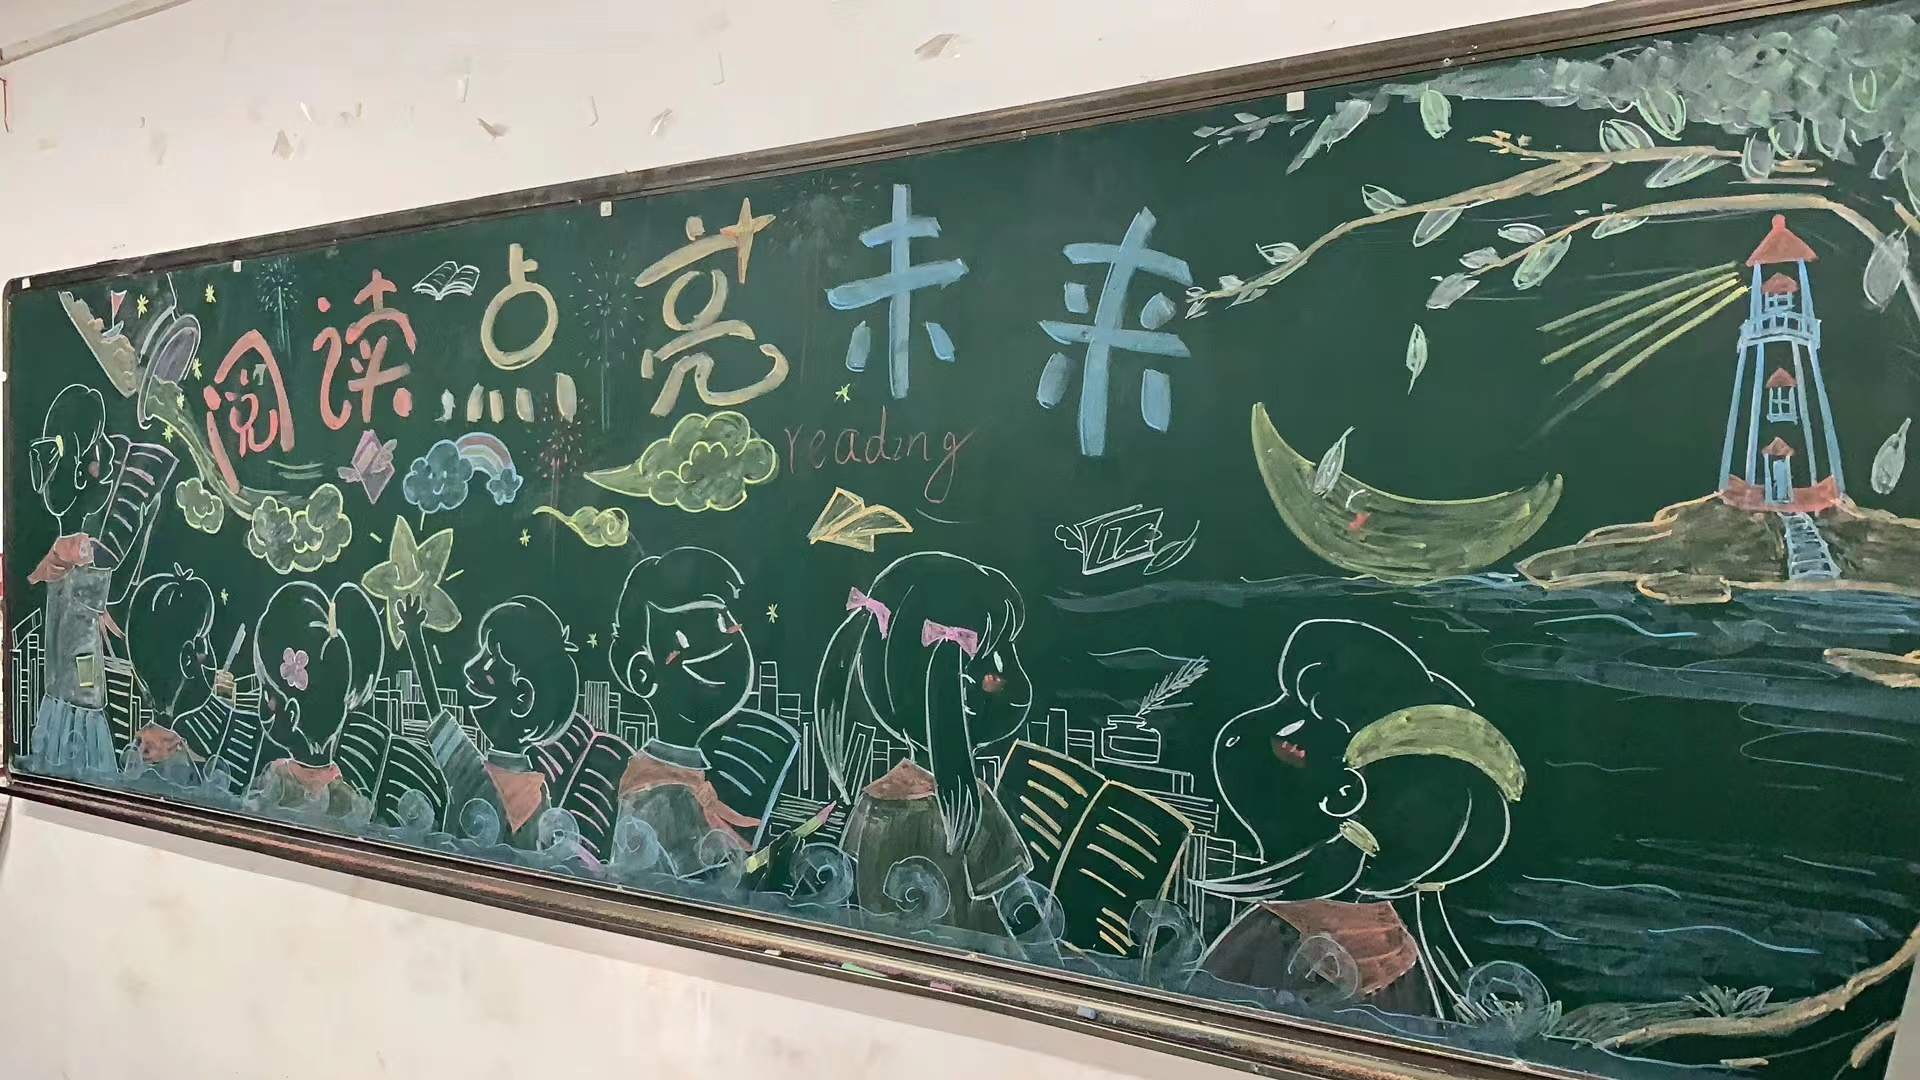 阅读点亮未来
reading